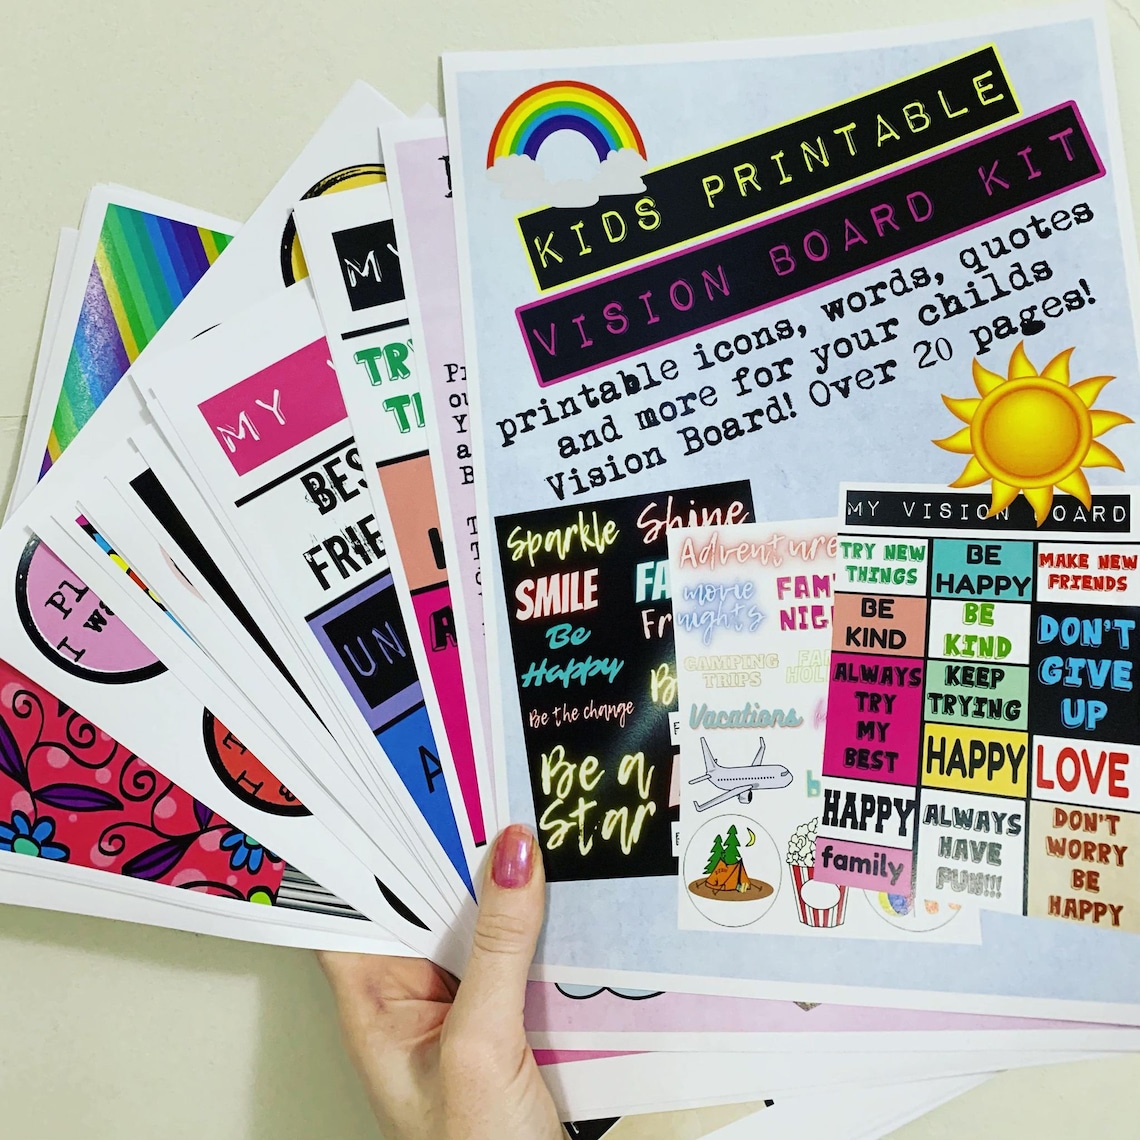 KIDS PRINTABLE
VISION BOARD KIT
printable icons, words, quotes
and more for your childs
Vision Board! Over 20 pages!
Sparkle
Shine
SMILE
Be
Happy
Be the change
Be a
Star
Adventure
movie
nights
FAM
NIG
CAMPING
TRIPS
Vacations
MY VISION BOARD
TRY NEW
THINGS
BE
HAPPY
MAKE NEW
FRIENDS
BE
KIND
BE
KIND
DON'T
GIVE
UP
ALWAYS
TRY
MY
BEST
KEEP
TRYING
HAPPY
LOVE
HAPPY
family
ALWAYS
HAVE
FUN!!!
DON'T
WORRY
BE
HAPPY
MY
TRY
TH
MY
BES
FRIE
UN
A
Pl
I wa